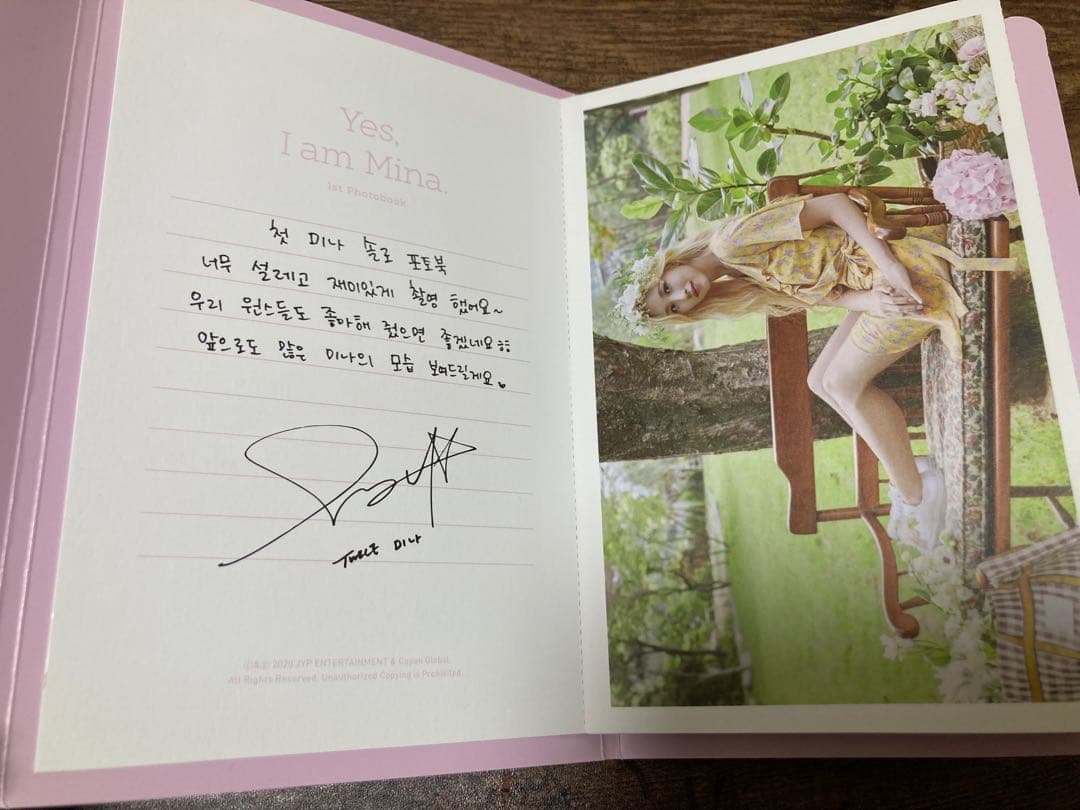 Yes,
I am Mina.
1st Photobook
첫 미나 솔로 포토북
너무 설레고 재미있게 촬영 했어요~
우리 원스들도 좋아해 줬으면 좋겠네요ㅎㅎ
앞으로도 많은 미나의 모습 보여드릴게요♥
TWICE 미나
ⓒ&ⓟ 2020 JYP ENTERTAINMENT & Copan Global.
All Rights Reserved. Unauthorized Copying is Prohibited.